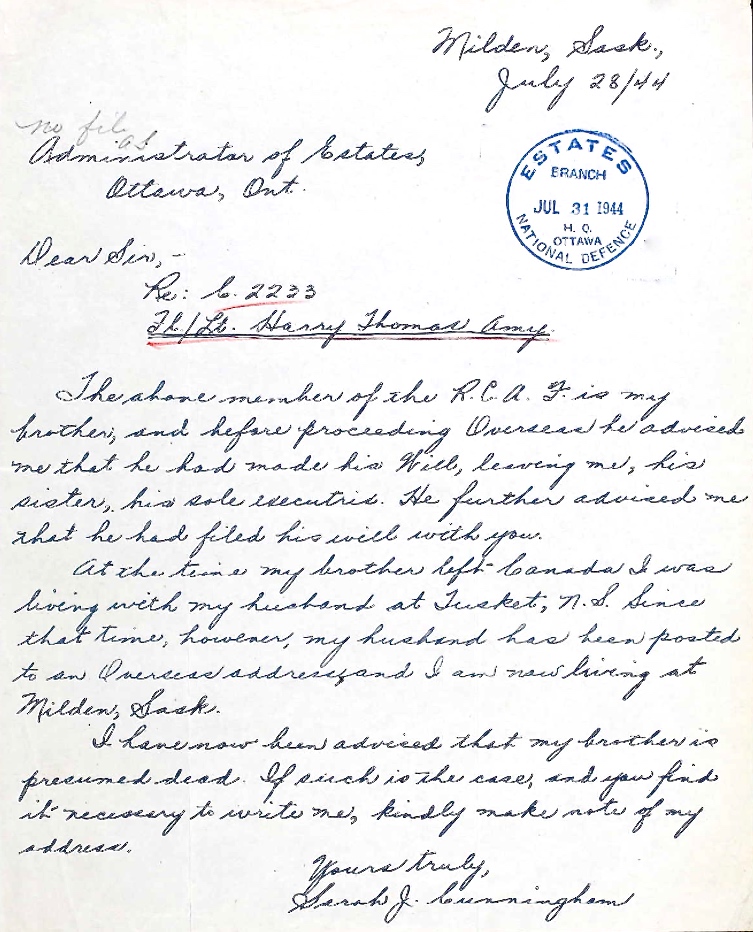 Milden, Sask.,
July 28/44
no file
as
Administrator of Estates,
Ottawa, Ont.
ESTATES
BRANCH
JUL 31 1944
H. Q.
OTTAWA
NATIONAL DEFENCE
Dear Sir,-
Re: C. 2233
Fl/Lt. Harry Thomas Amy.
The above member of the R.C.A.F. is my
brother, and before proceeding Overseas he advised
me that he had made his Will, leaving me, his
sister, his sole executrix. He further advised me
that he had filed his will with you.
At the time my brother left Canada I was
living with my husband at Tusket, N.S. Since
that time, however, my husband has been posted
to an Overseas address, and I am now living at
Milden, Sask.
I have now been advised that my brother is
presumed dead. If such is the case, and you find
it necessary to write me, kindly make note of my
address.
Yours truly,
Sarah J. Cunningham